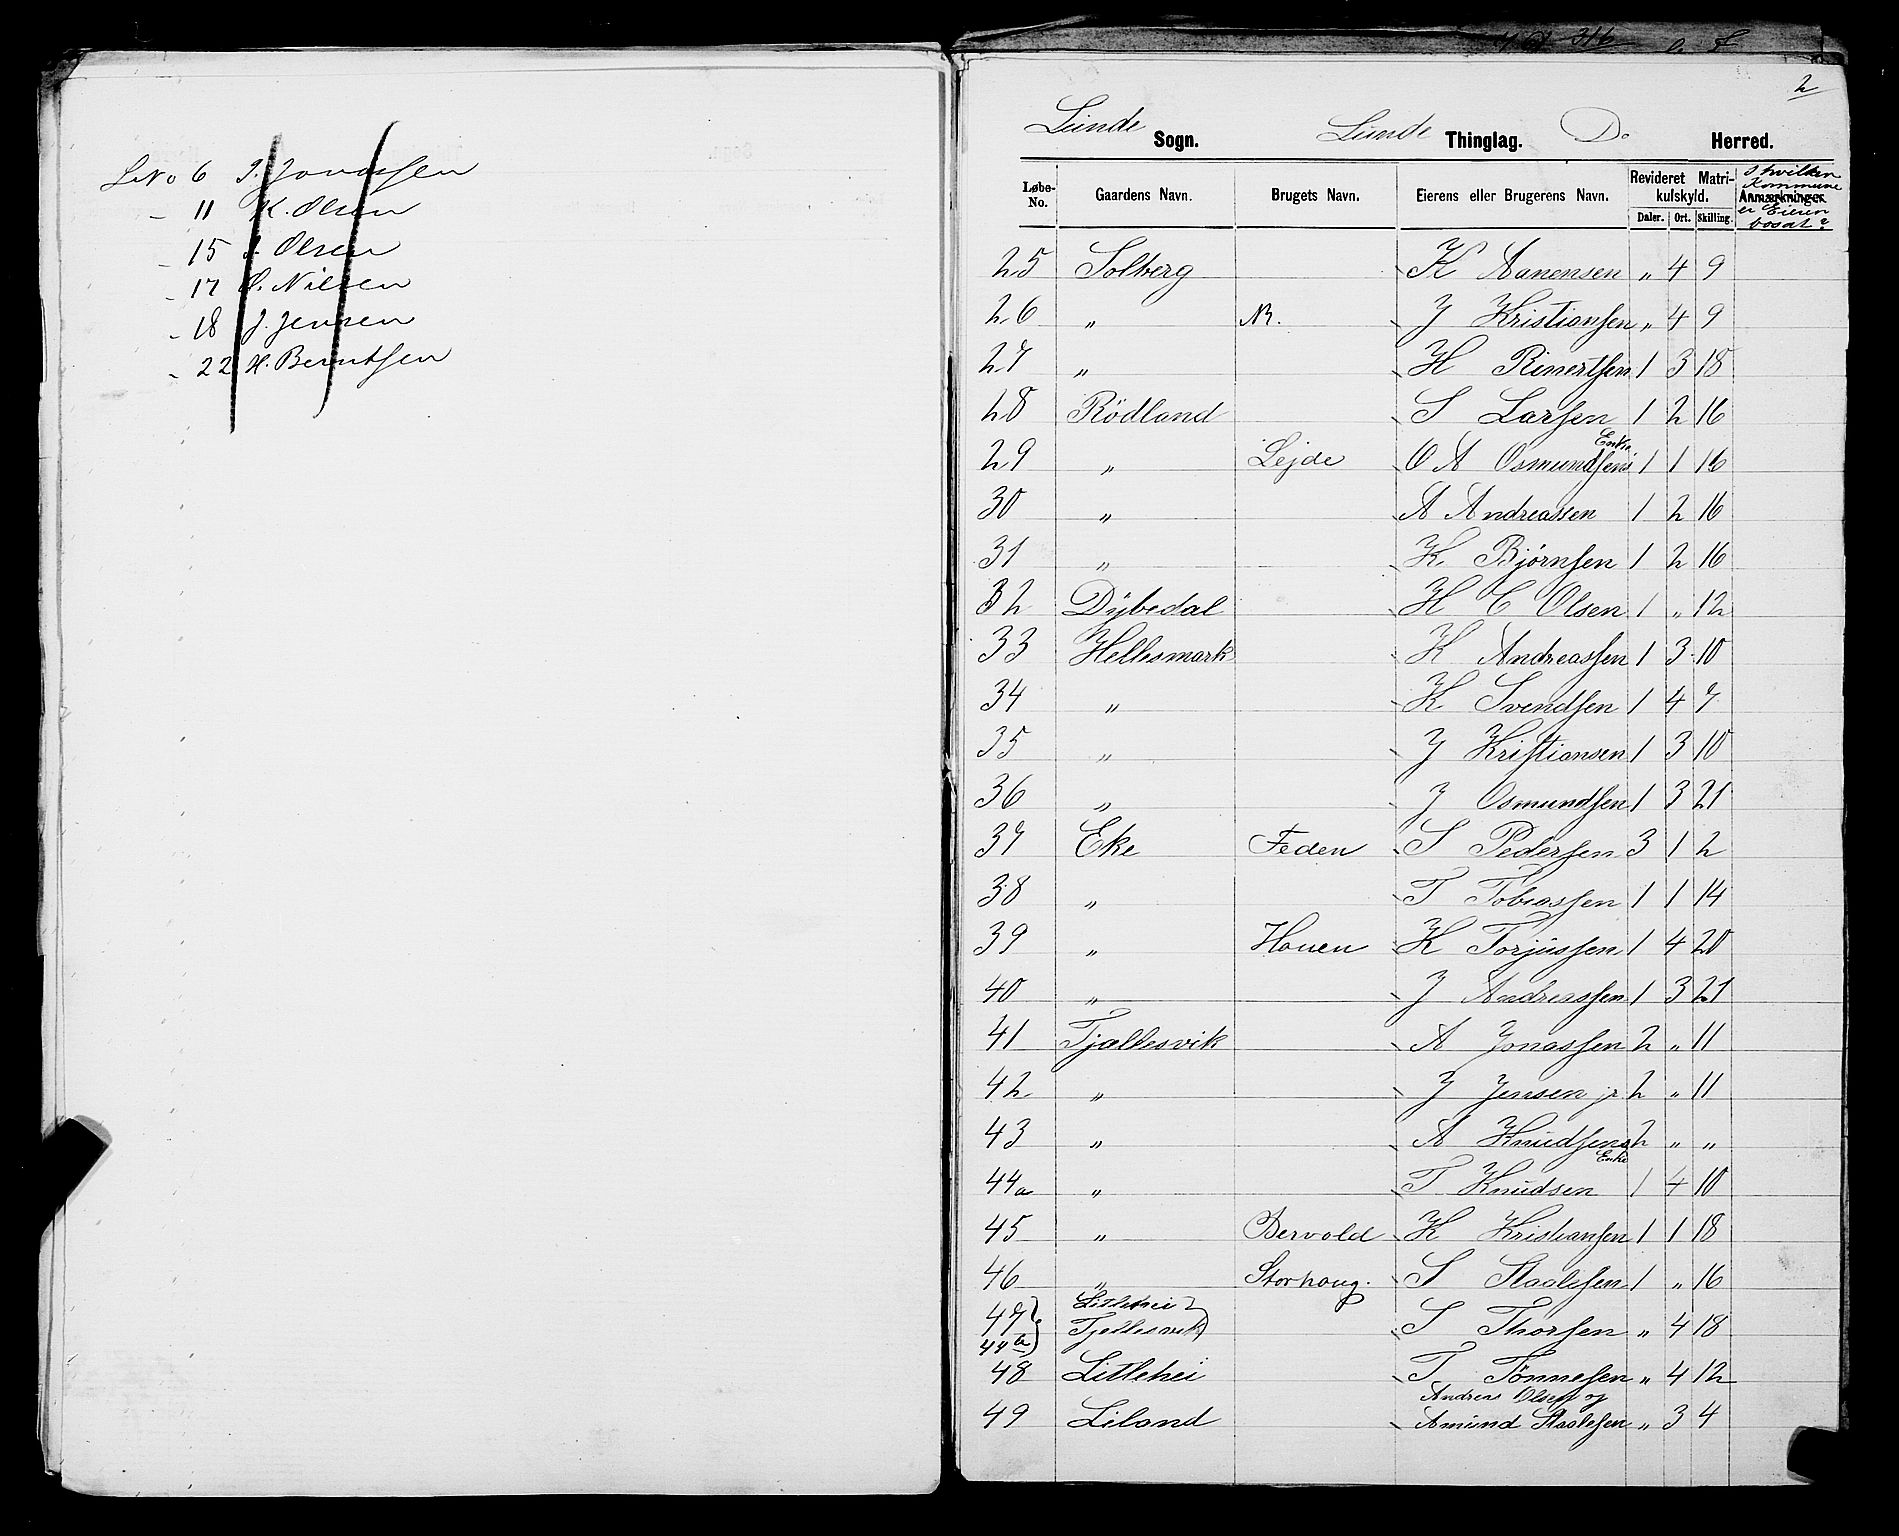 L No 6 J. Jonassen
" 11 K. Olsen
" 15 J. Olsen
" 17 O. Nilsen
" 18 J. Jensen
" 22 H. Berntsen
2
Lunde Sogn. Lunde Thinglag. Do Herred.
Løbe-No. Gaardens Navn. Brugets Navn. Eierens eller Brugerens Navn. Revideret Matrikulskyld. Daler. Ort. Skilling. Anmærkninger. I hvilken Kommune er Eieren bosat?
25 Solberg K Aanensen " 4 9
26 " N. J Kristiansen " 4 9
27 " H Rinertsen 1 3 18
28 Rödland S Larsen 1 2 16
29 " Lejde O A Osmundsens Enke 1 1 16
30 " A Andreassen 1 2 16
31 " K Bjørnsen 1 2 16
32 Dybedal H C Olsen 1 " 12
33 Hellesmark K Andreassen 1 3 10
34 " K Svendsen 1 4 7
35 " J Kristiansen 1 3 10
36 " J Osmundsen 1 3 21
37 Eke Feden S Pedersen 3 1 2
38 " T Tobiassen 1 1 14
39 " Houen K Torjussen 1 4 20
40 " J Andreassen 1 3 21
41 Tjællesvik A Jonassen 2 " 11
42 " J Jensen jr 2 " 11
43 " A Knudsens Enke 2 " "
44a " T Knudsen 1 4 10
45 " Bervold K Kristiansen 1 1 18
46 " Storhaug. S Staalesen 1 " 16
47 Litlehei
44b Tjellesvik S Thorsen " 4 18
48 Litlehei T Tönnesen " 4 12
49 Liland Andreas Olsen og Amund Staalesen " 3 4